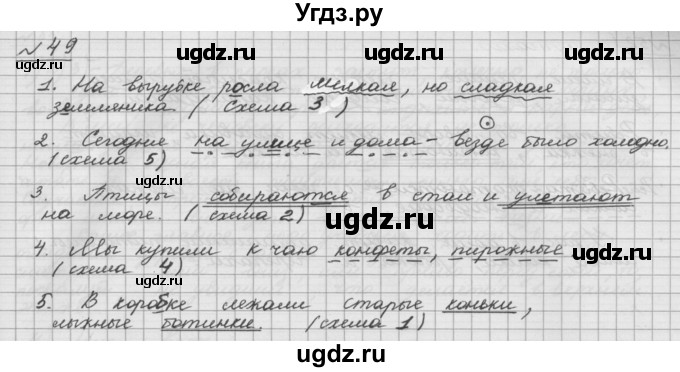 Угдз.ру
№ 49
1. На вырубке росла мелкая, но сладкая
земляника. (Схема 3)
2. Сегодня на улице и дома - везде было холодно.
(схема 5)
3. Птицы собираются в стаи и улетают
на море. (схема 2)
4. Мы купили к чаю конфеты, пирожные
(схема 4)
5. В коробке лежали старые коньки,
лыжные ботинки. (схема 1)
ugdz.ru ugdz.ru ugdz.ru
ugdz.ru ugdz.ru ugdz.ru
ugdz.ru ugdz.ru ugdz.ru
ugdz.ru ugdz.ru ugdz.ru
ugdz.ru ugdz.ru ugdz.ru
ugdz.ru